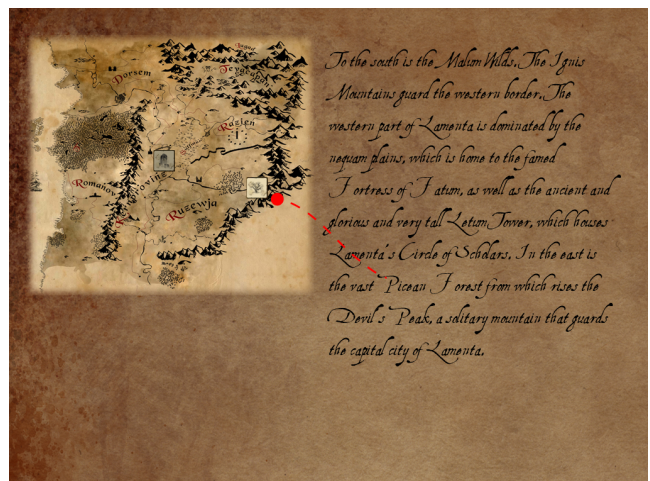 Dorsem
Tevarakan
Razlen
Romanov
Ruzewja
To the south is the Malum Wilds. The Ignis
Mountains guard the western border. The
western part of Lamenta is dominated by the
nequam plains, which is home to the famed
Fortress of Fatum, as well as the ancient and
glorious and very tall Letum Tower, which houses
Lamenta's Circle of Scholars. In the east is
the vast Picean Forest from which rises the
Devil's Peak, a solitary mountain that guards
the capital city of Lamenta.